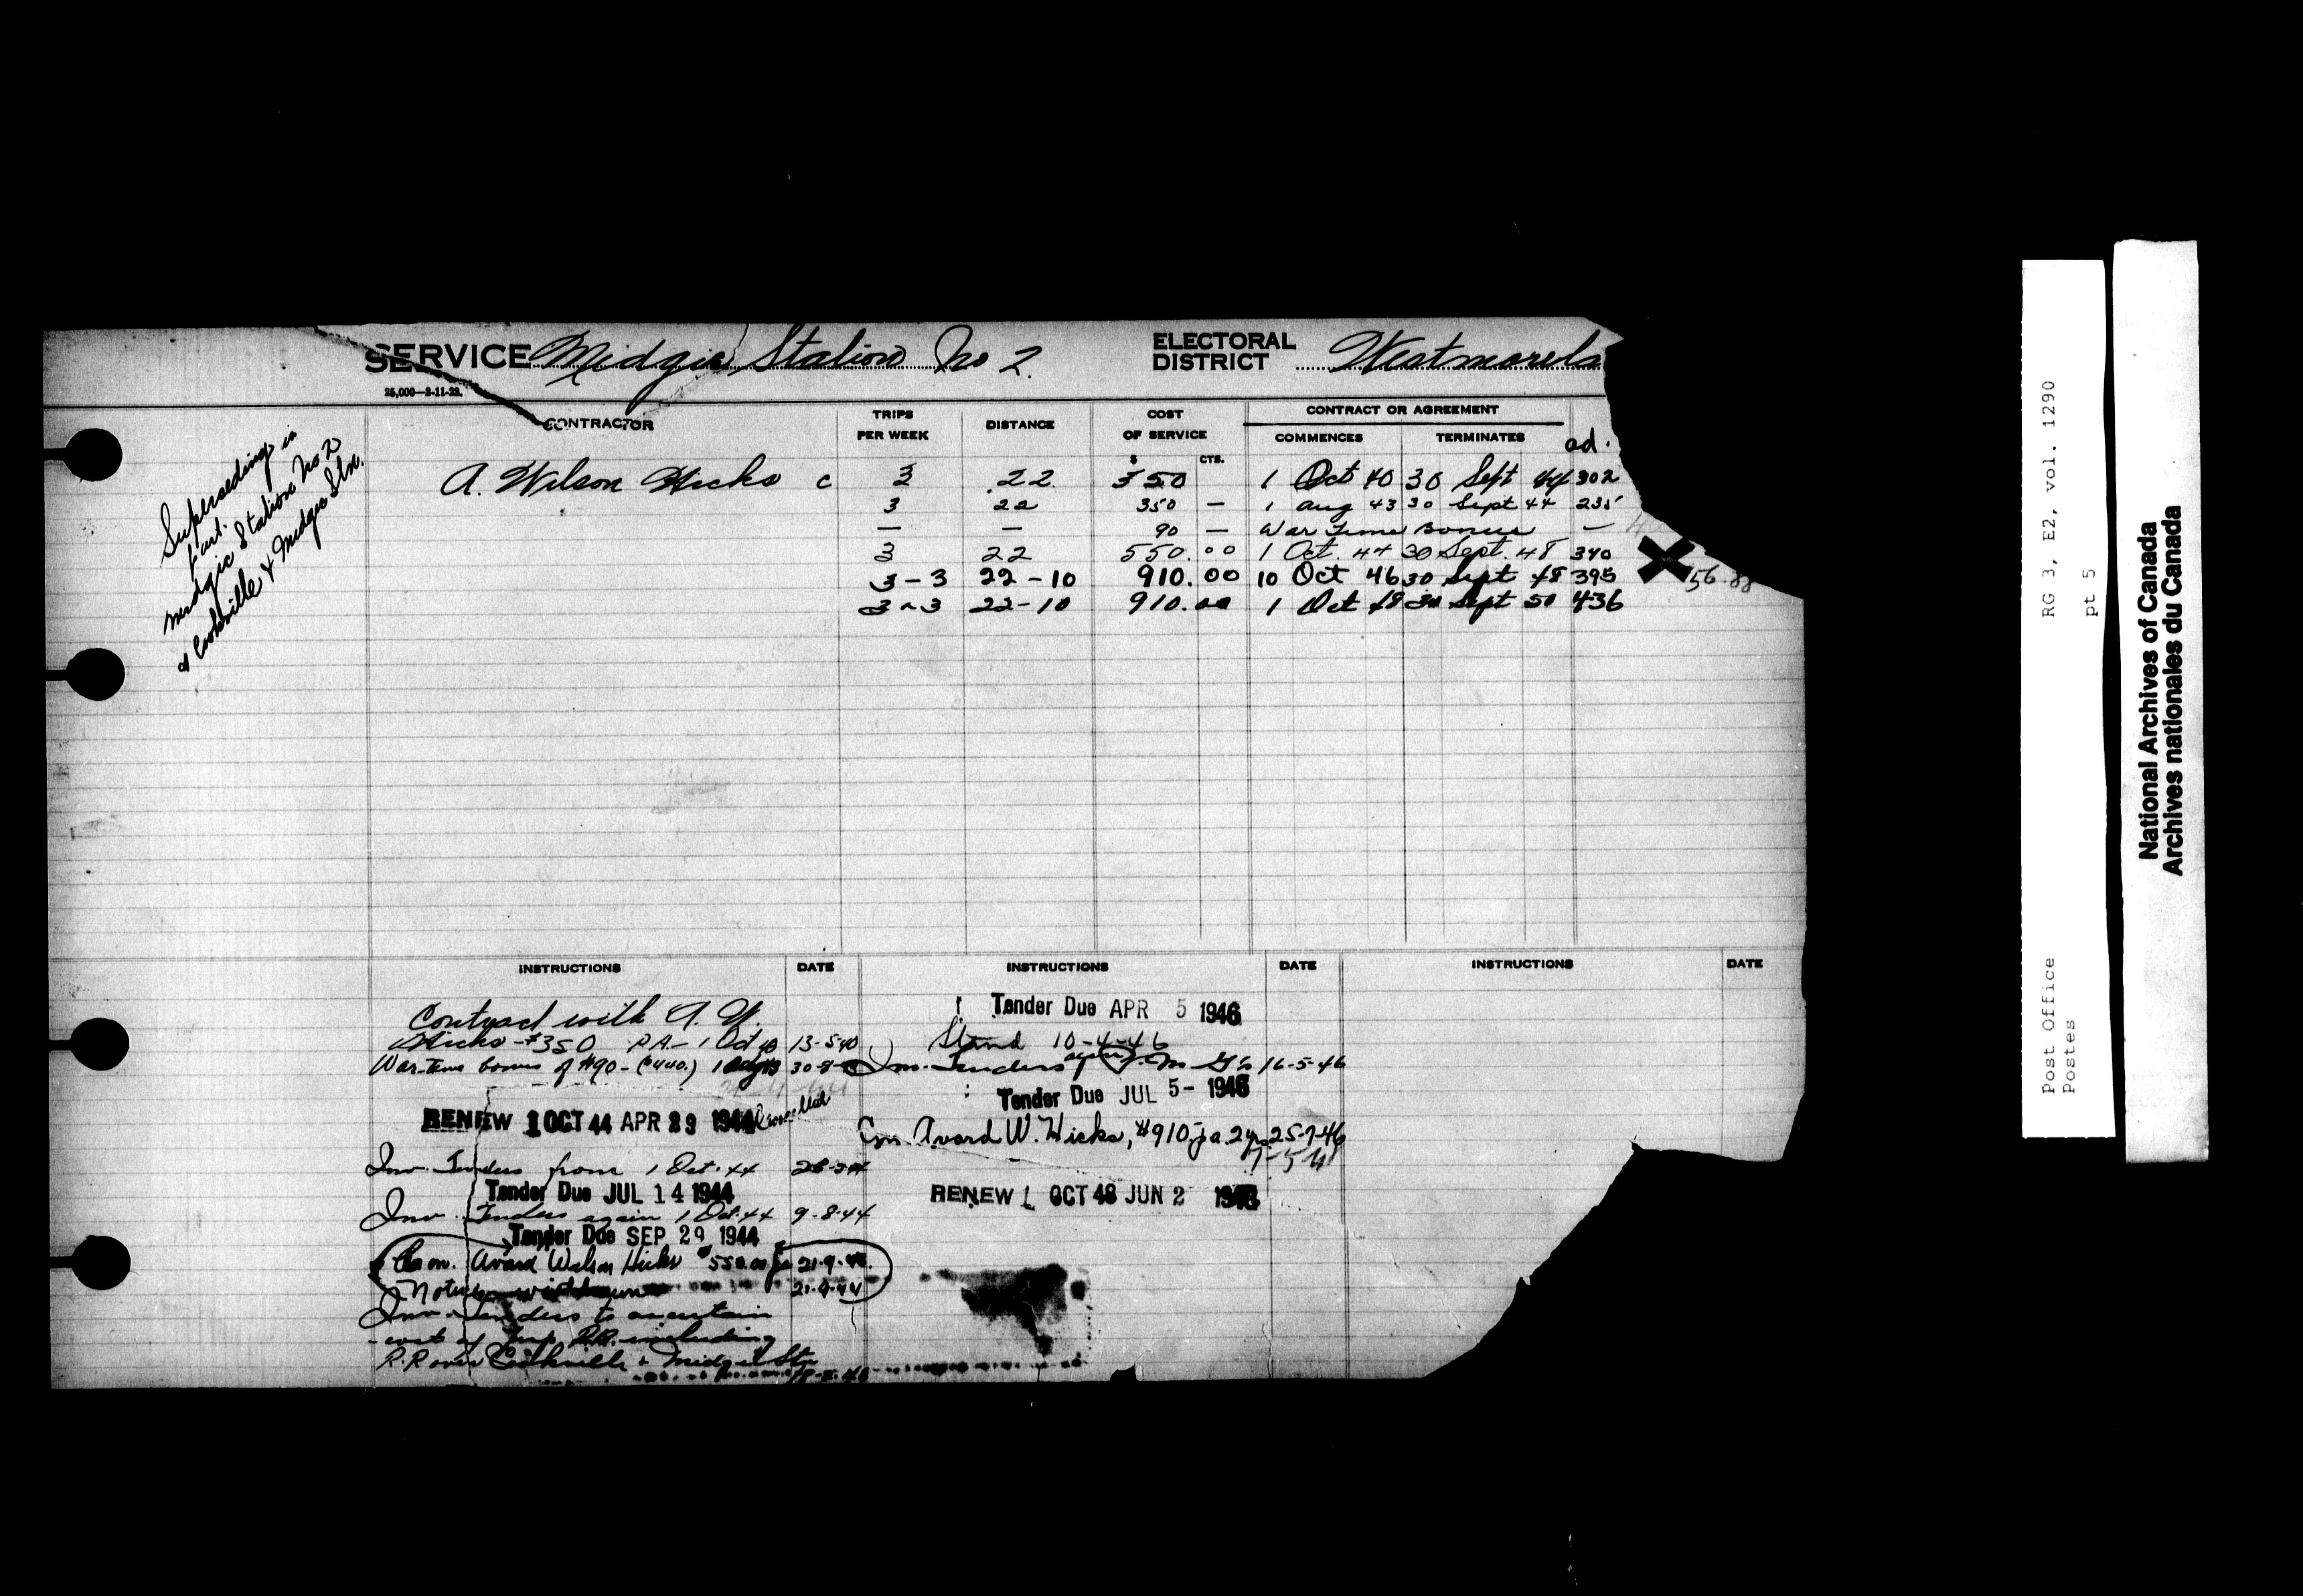 SERVICE Midgic Station No 2. ELECTORAL DISTRICT Westmorela
25,000—2-11-22.
CONTRACTOR TRIPS PER WEEK DISTANCE COST OF SERVICE CONTRACT OR AGREEMENT
COMMENCES TERMINATES ad.
$ CTS.
A. Wilson Hicks c 3 22 350 1 Oct 40 30 Sept 44 302
3 22 350 — 1 Aug 43 30 Sept 44 235
— — 90 — War Time Bonus —
3 22 550.00 1 Oct. 44 30 Sept. 48 340
3-3 22-10 910.00 10 Oct 46 30 Sept 48 395 56.88
3-3 22-10 910.00 1 Oct 48 30 Sept 50 436
Superseding in
part.
Midgic Station No 2
& Cookville & Midgic Stn.
INSTRUCTIONS DATE INSTRUCTIONS DATE INSTRUCTIONS DATE
Contract with A. W.
Hicks - $350 P.A. - 1 Oct 40 13-5-40
War-time bonus of $90 - ($440.) 1 Aug 43
RENEW 1 OCT 44 APR 29 1944 Cancelled
Inv. Tenders from 1 Oct. 44
Tender Due JUL 14 1944
Inv. Tenders again 1 Oct. 44 9-8-44
Tender Due SEP 29 1944
Con. Avard Wilson Hicks $550.00 21-9-44.
Notice withdrawn 21-9-44
Inv. Tenders to ascertain
cost of Imp. including
R.R. over Cookville & Midgic Stn
Tender Due APR 5 1946
Stand 10-4-46
Inv. Tenders again 16-5-46
Tender Due JUL 5- 1946
Con. Avard W. Hicks, $910 p a. 2 yrs 25-7-46
RENEW 1 OCT 48 JUN 2 1948
RG 3, E2, vol. 1290
pt 5
Post Office
Postes
National Archives of Canada
Archives nationales du Canada